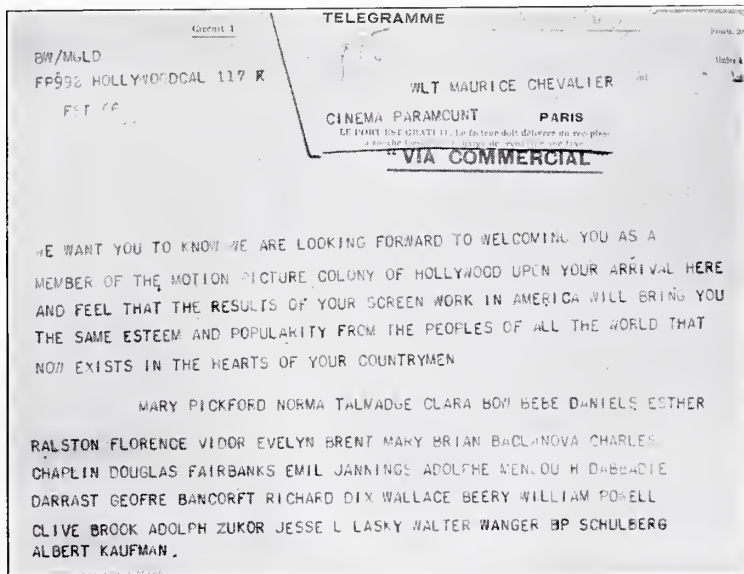 Circuit 1
TELEGRAMME
BW/MGLD
FP992 HOLLYWOODCAL 117 R
WLT MAURICE CHEVALIER
CINEMA PARAMOUNT PARIS
LE PORT EST GRATUIT. Le facteur doit délivrer un récépissé
"VIA COMMERCIAL
WE WANT YOU TO KNOW WE ARE LOOKING FORWARD TO WELCOMING YOU AS A
MEMBER OF THE MOTION PICTURE COLONY OF HOLLYWOOD UPON YOUR ARRIVAL HERE
AND FEEL THAT THE RESULTS OF YOUR SCREEN WORK IN AMERICA WILL BRING YOU
THE SAME ESTEEM AND POPULARITY FROM THE PEOPLES OF ALL THE WORLD THAT
NOW EXISTS IN THE HEARTS OF YOUR COUNTRYMEN
MARY PICKFORD NORMA TALMADGE CLARA BOW BEBE DANIELS ESTHER
RALSTON FLORENCE VIDOR EVELYN BRENT MARY BRIAN BACLANOVA CHARLES
CHAPLIN DOUGLAS FAIRBANKS EMIL JANNINGS ADOLPHE MENJOU H DABBADIE
DARRAST GEOFRE BANCORFT RICHARD DIX WALLACE BEERY WILLIAM POWELL
CLIVE BROOK ADOLPH ZUKOR JESSE L LASKY WALTER WANGER BP SCHULBERG
ALBERT KAUFMAN.